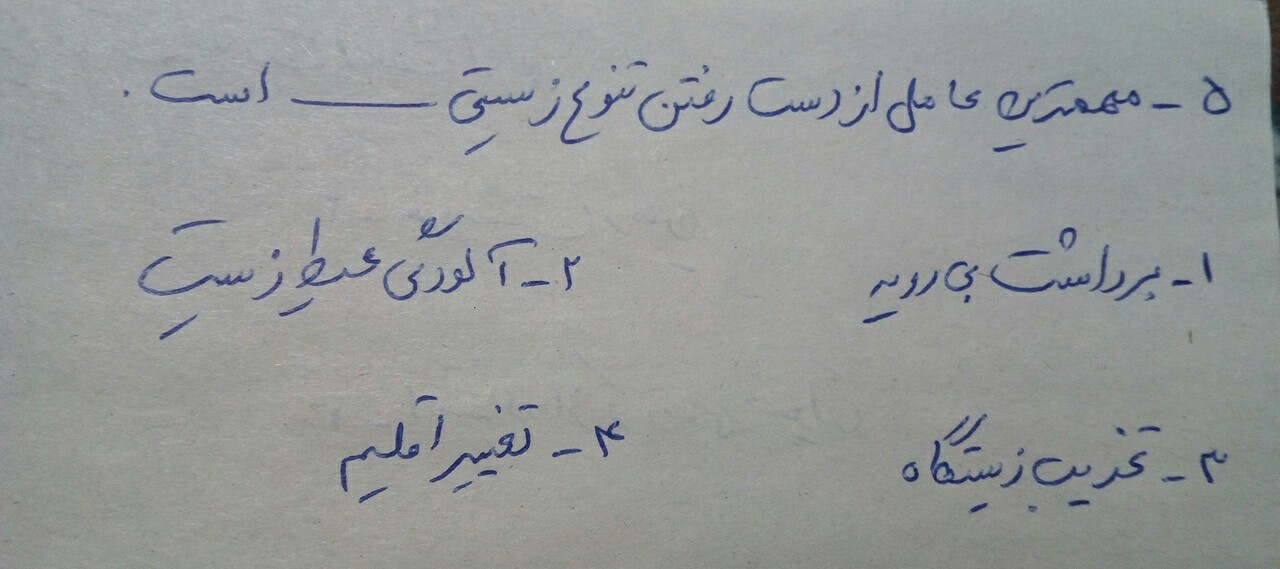 ۵ - مهمترین عامل از دست رفتن تنوع زیستی ــــــ است .
۱ - برداشت بی رویه ۲ - آلودگی محیط زیست
۳ - تخریب زیستگاه ۴ - تغییر اقلیم